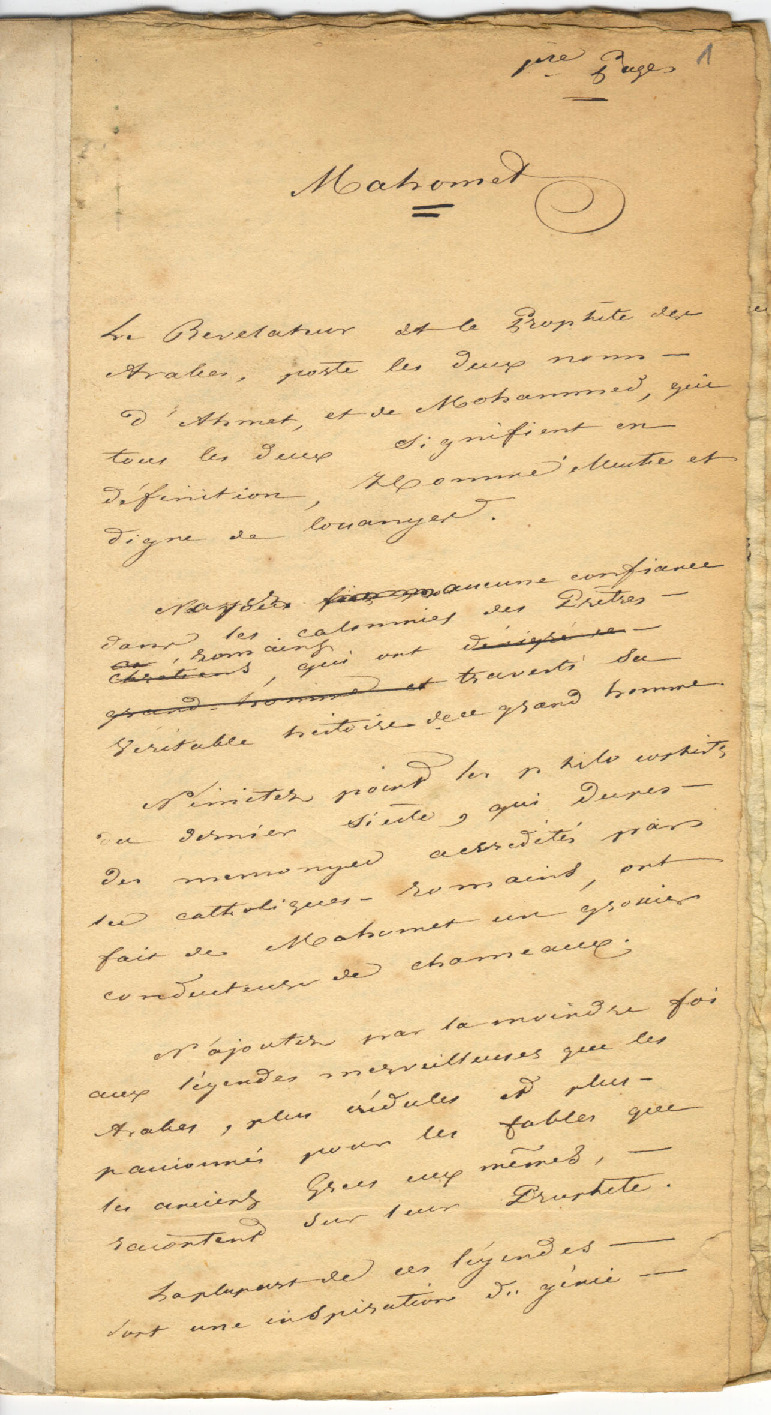 1
1ere Page
Mahomet
Le Revelateur et le Prophête des
Arabes, porte les deux noms
d'Ahmet, et de Mohammed, qui
tous les deux signifient en
définition, Homme illustre et
digne de louanges.
N'ayez aucune confiance
dans les calomnies des Prêtres
romains
chretiens, qui ont dénigré ce
grand homme et traverti sa
véritable histoire de ce grand homme.
N'imitez point les philosophistes
du dernier siècle, qui
des mensonges accrédités par
les catholiques-romains, ont
fait de Mahomet un grossier
conducteur de chameaux.
N'ajoutez pas la moindre foi
aux légendes merveilleuses que les
Arabes, plus crédules et plus
passionnés pour les fables que
les anciens Grecs eux mêmes,
racontent sur leur Prophète.
La plupart de ces légendes
sont une inspiration du génie